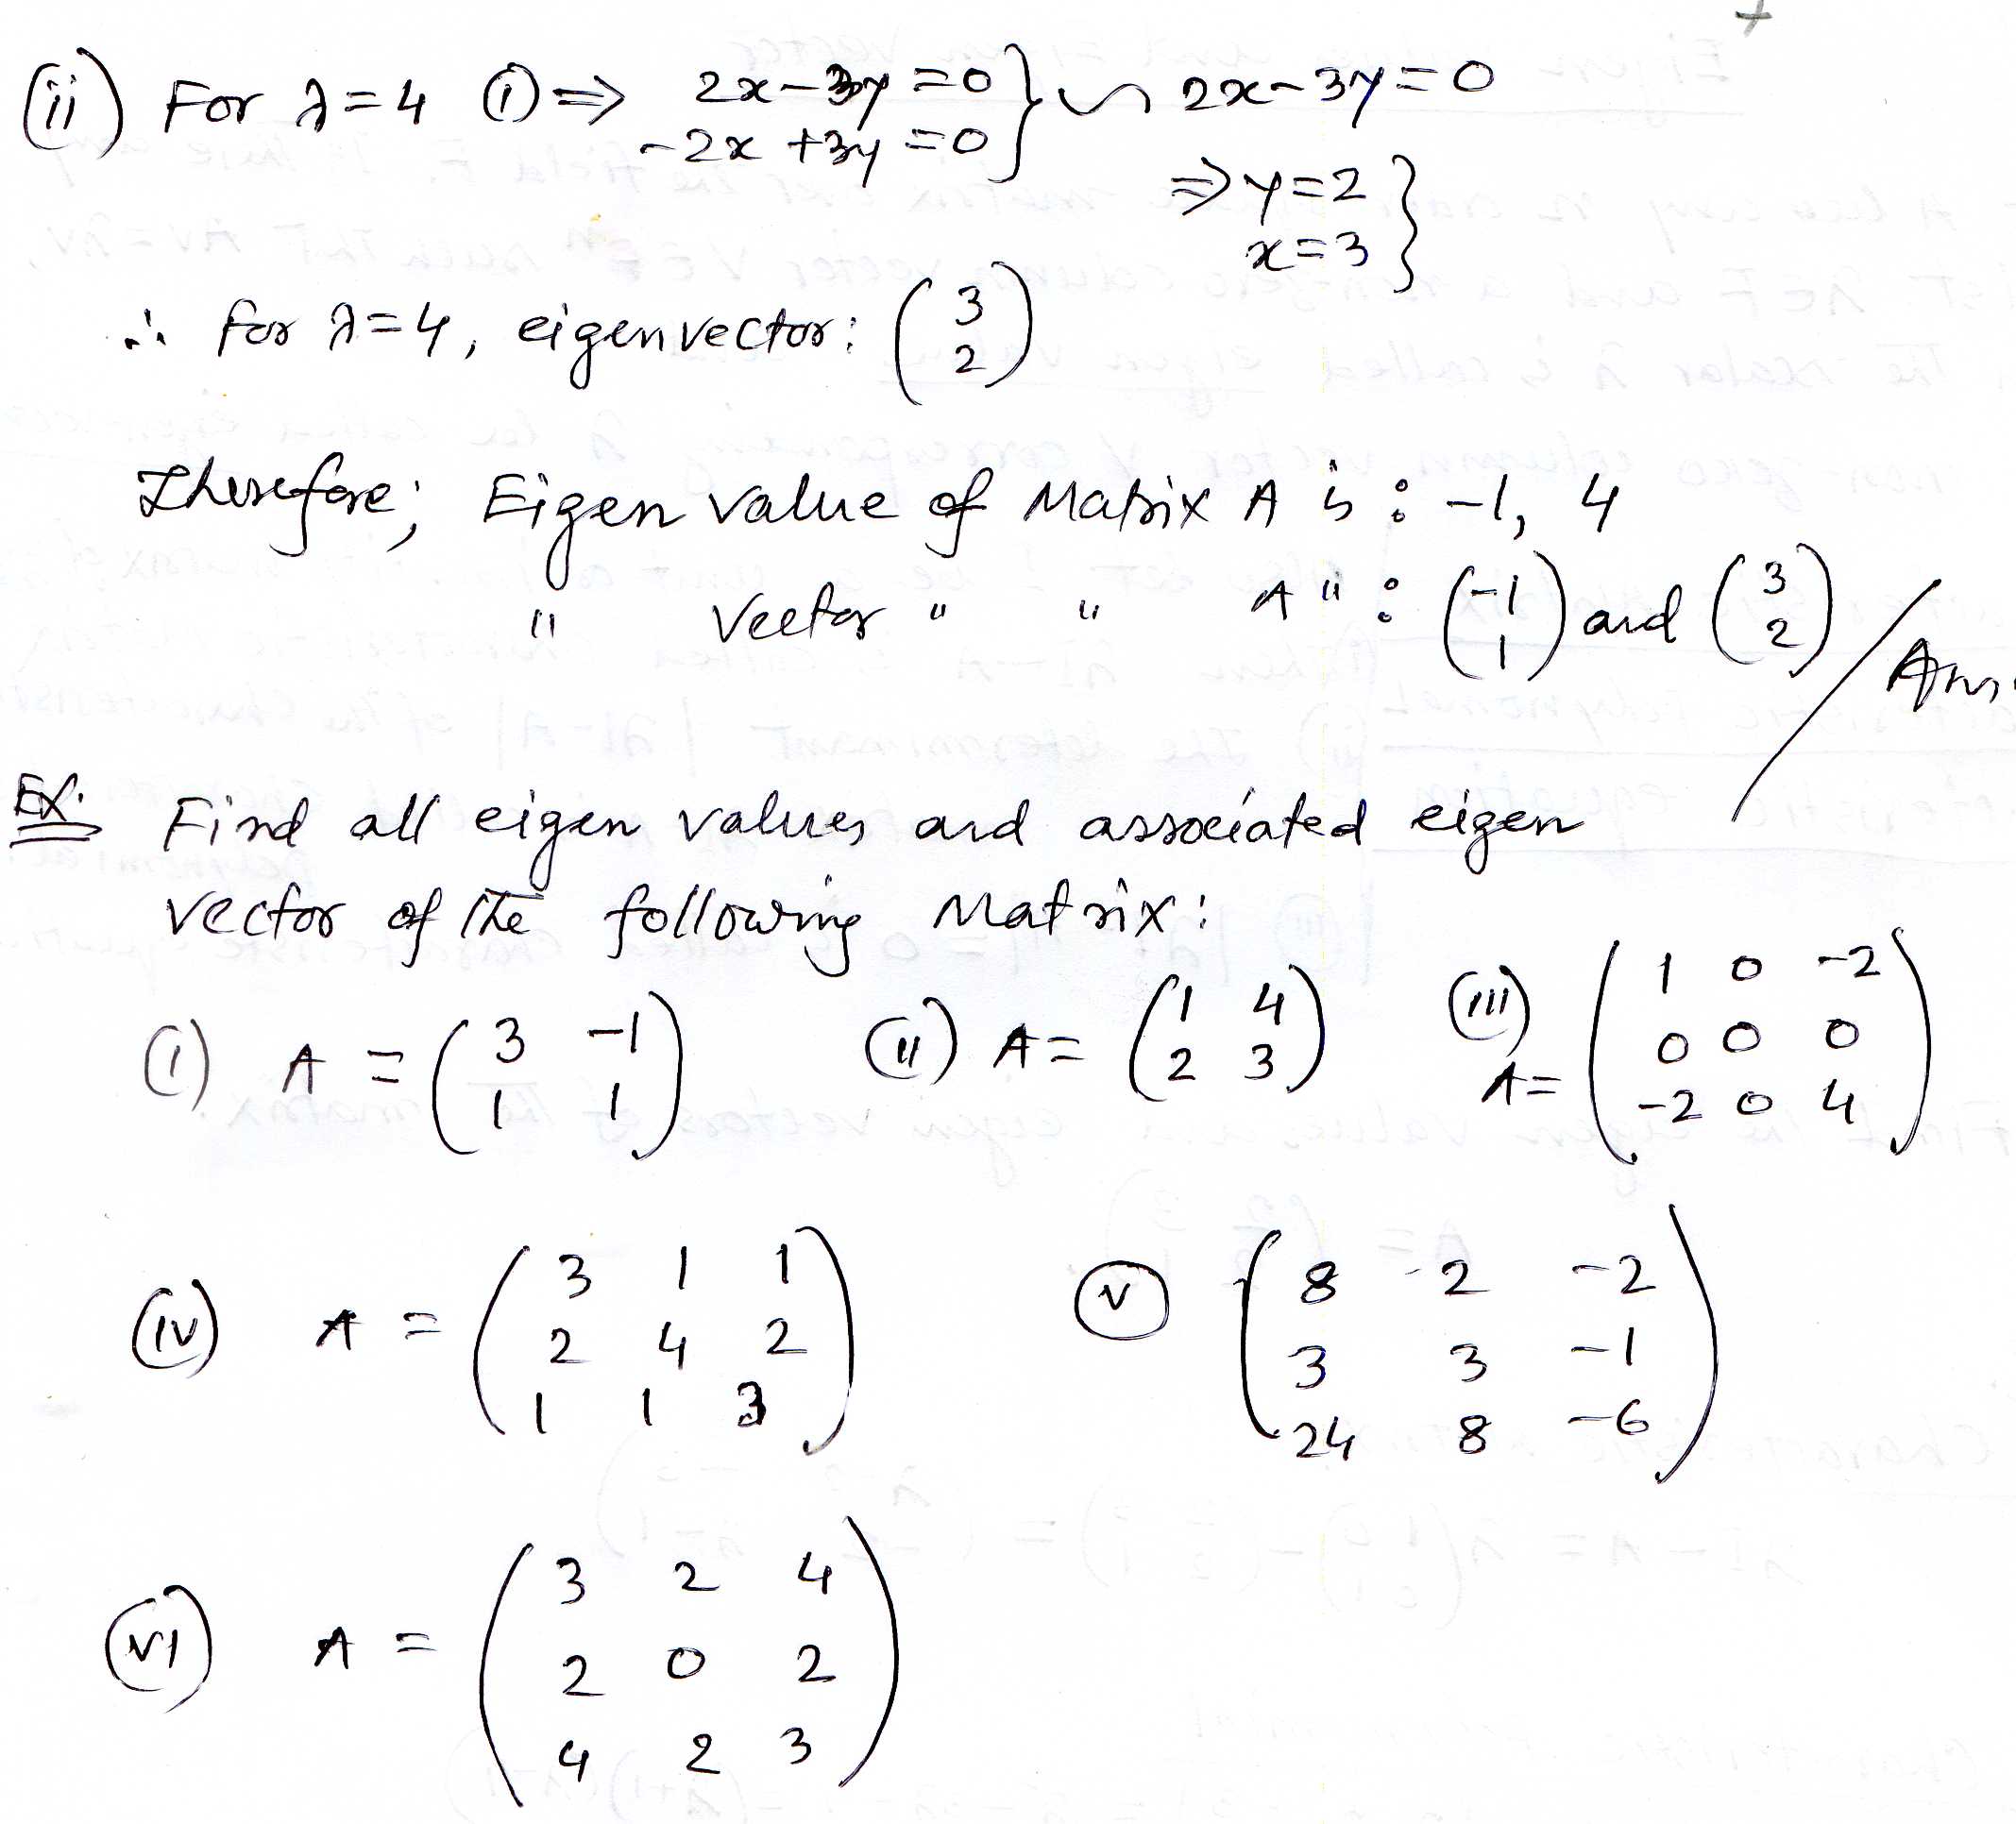 (ii) For λ=4 ① ⇒ 2x-3y=0 } ~ 2x-3y=0
-2x+3y=0
⇒ y=2 }
x=3
∴ for λ=4, eigenvector: (3
2)
Therefore; Eigen value of Matrix A is : -1, 4
" Vector " " A " : (-1
1) and (3
2) / Ans.
Ex. Find all eigen values and associated eigen
vector of the following Matrix:
(i) A = (3 -1
1 1)
(ii) A = (1 4
2 3)
(iii) A = (1 0 -2
0 0 0
-2 0 4)
(iv) A = (3 1 1
2 4 2
1 1 3)
(v) (8 2 -2
3 3 -1
24 8 -6)
(vi) A = (3 2 4
2 0 2
4 2 3)